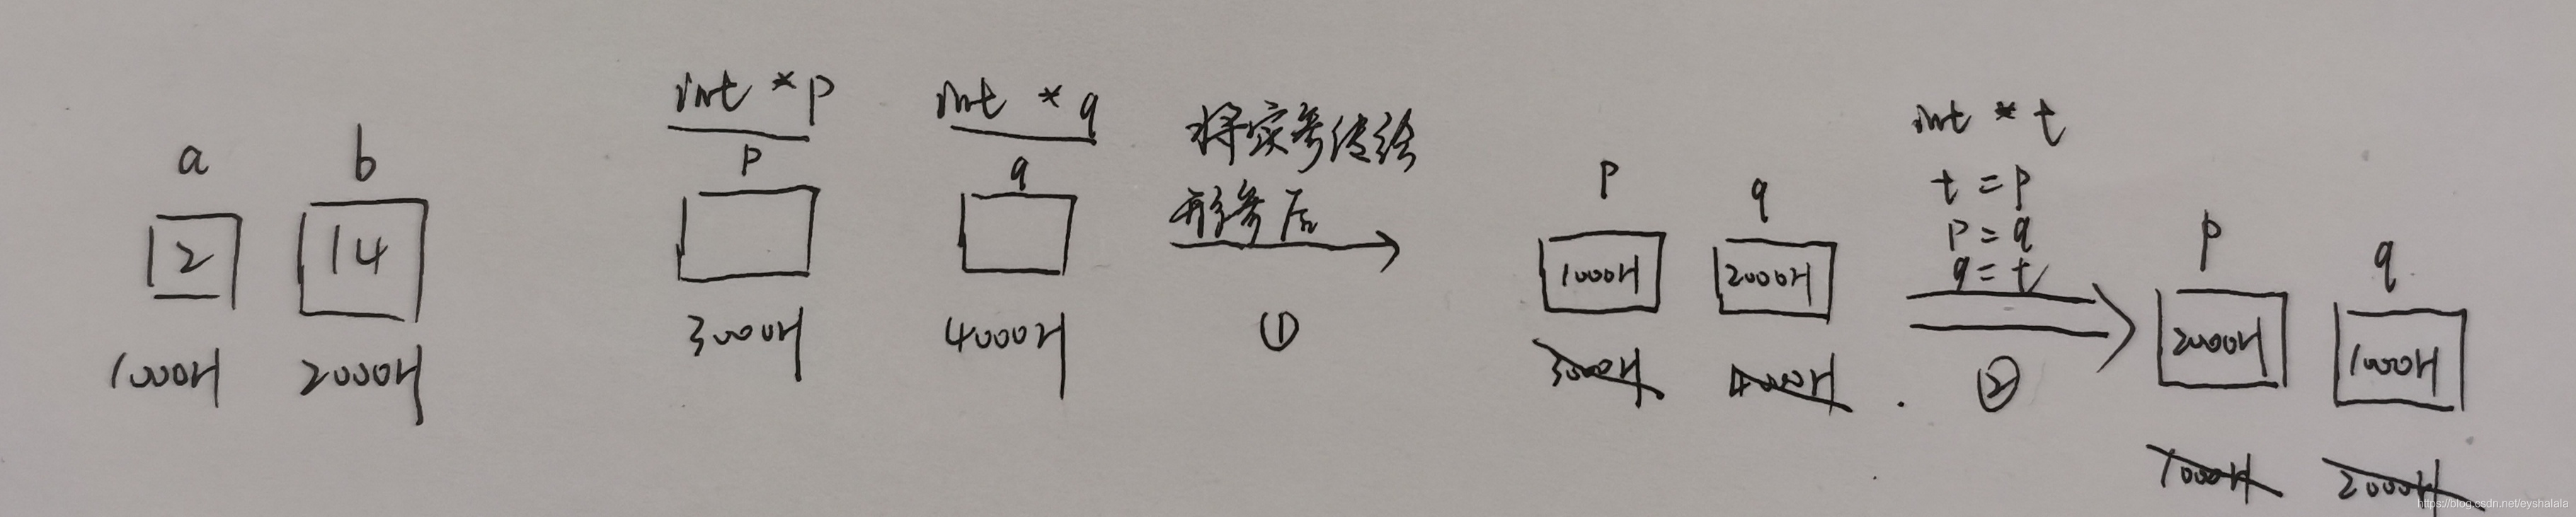 a b
2 14
1000H 2000H
int *p
p
3000H
int *q
q
4000H
将实参传给
形参后
①
p q
1000H 2000H
3000H 4000H
int *t
t=p
p=q
q=t
②
p q
2000H 1000H
1000H 2000H
https://blog.csdn.net/eyshalala